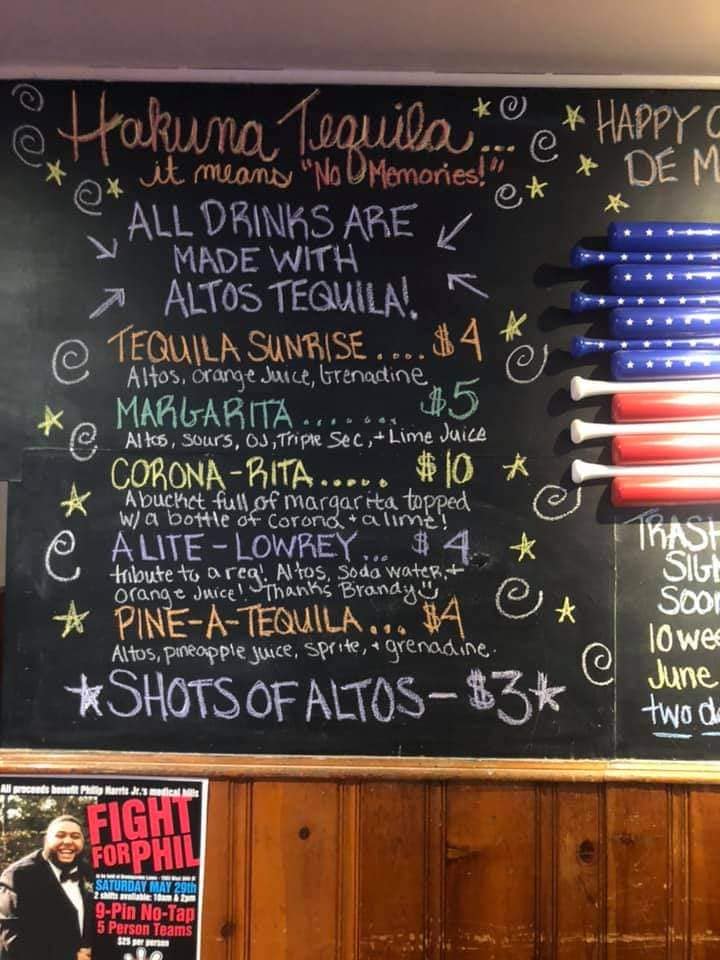 Hakuna Tequila...
it means "No Memories!"
ALL DRINKS ARE
MADE WITH
ALTOS TEQUILA!
TEQUILA SUNRISE .... $4
Altos, orange Juice, Grenadine
MARGARITA ....... $5
Altos, sours, OJ, Triple Sec, + Lime Juice
CORONA-RITA ..... $10
A bucket full of margarita topped
w/ a bottle of Corona + a lime!
A LITE-LOWREY ... $4
tribute to a reg! Altos, Soda water, +
Orange Juice! Thanks Brandy
PINE-A-TEQUILA ... $4
Altos, pineapple juice, sprite, + grenadine.
SHOTS OF ALTOS - $3
HAPPY
DE M
TRASH
SIG
SOO
10 wee
June
two d
All proceeds benefit Philip Harris Jr.'s medical bills
FIGHT
FOR PHIL
SATURDAY MAY 29th
2 shifts available: 10am & 2pm
9-Pin No-Tap
5 Person Teams
$25 per person